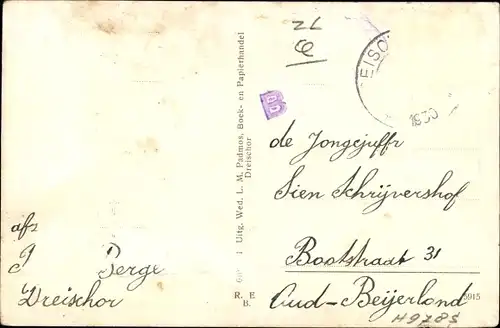 afz
J Berge
Dreischor
1 Uitg. Wed. L. M. Padmos, Boek- en Papierhandel
Dreischor
R. E
B.
EISC
1930
de Jongejuffr
Sien Schrijvershof
Bootstraat 31
Oud-Beijerland
5915
H9785